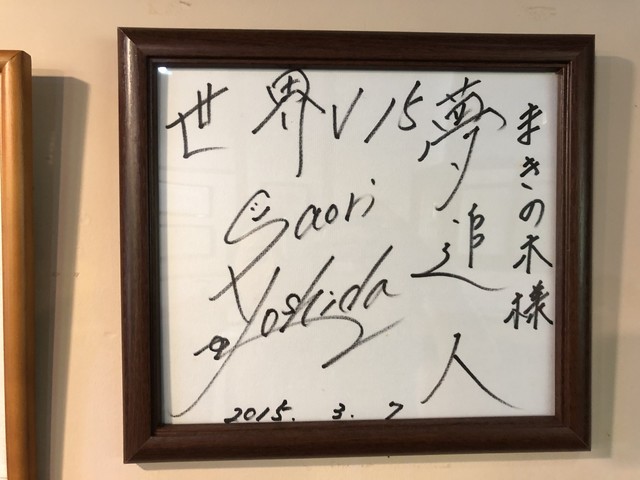 まきの木様
夢追人
世界V15
Saori
Yoshida
2015. 3. 7